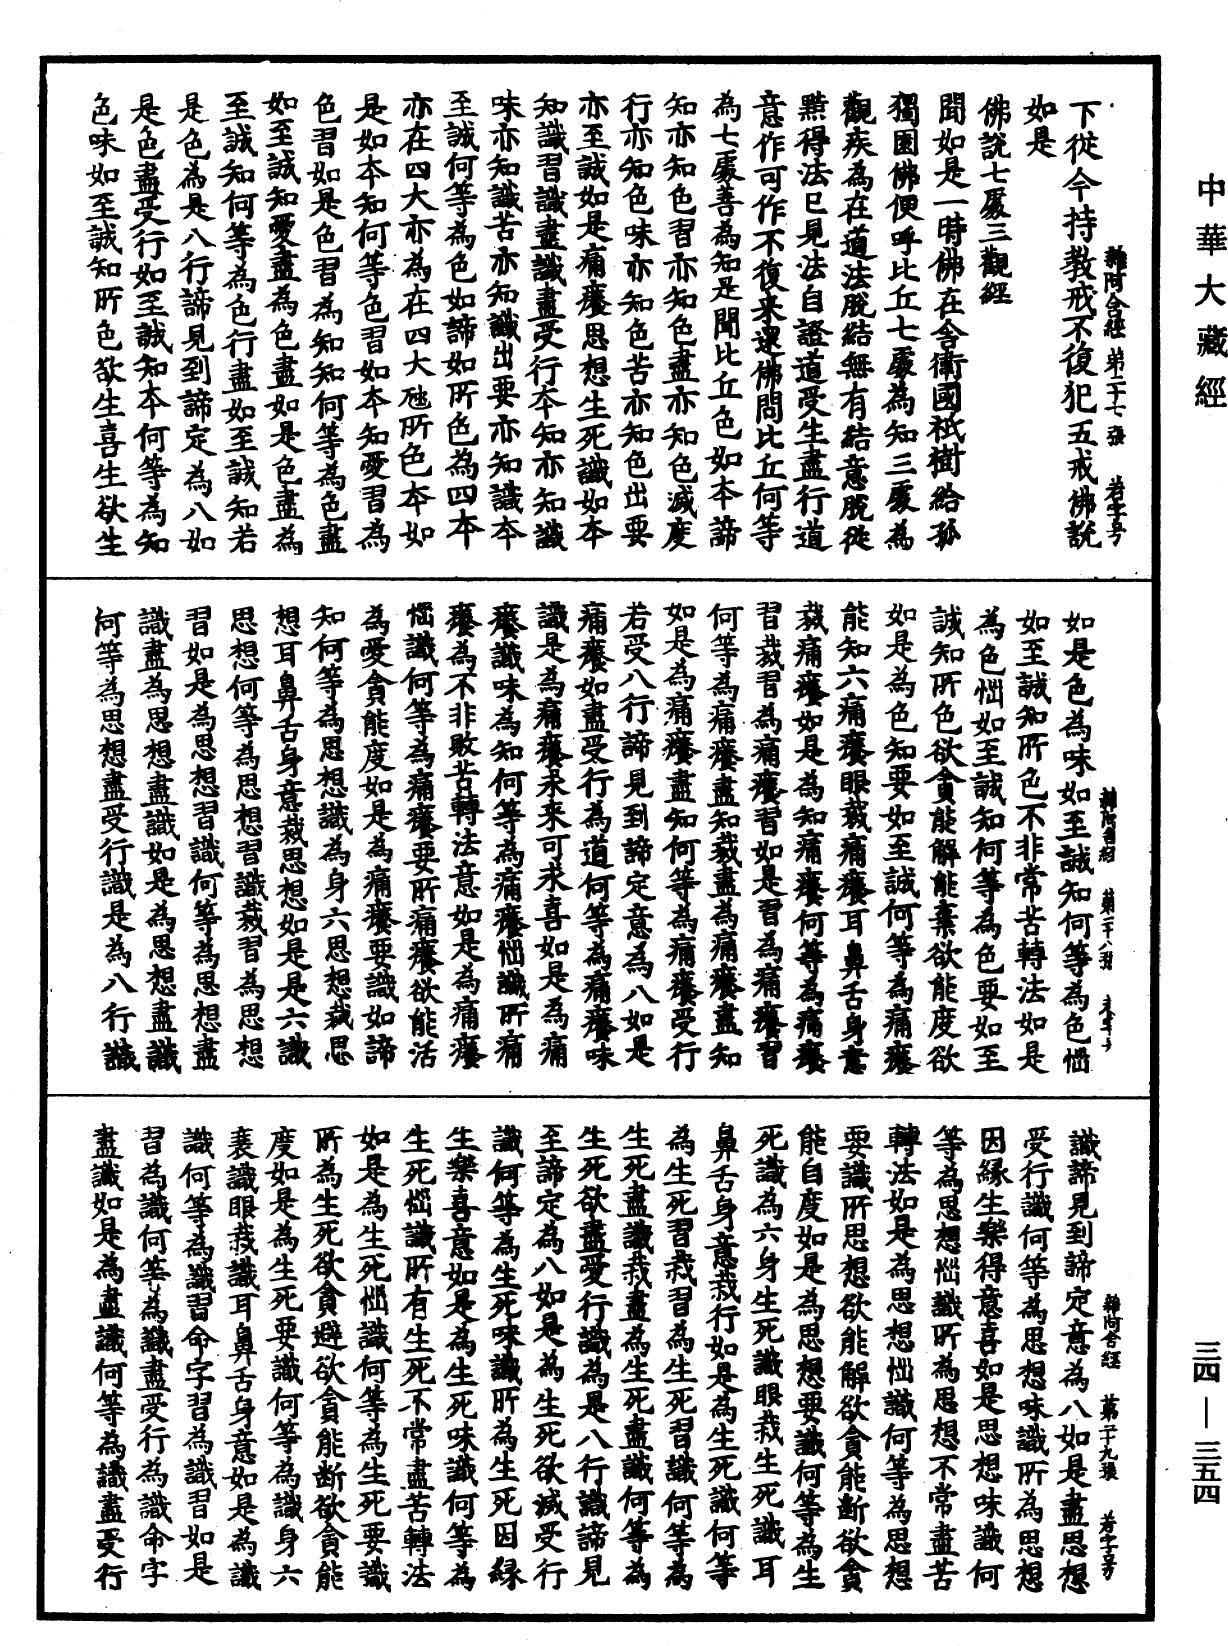 中華大藏經
雜阿含經 第二十七張 若字号
下從今持教戒不復犯五戒佛說
如是
佛說七處三觀經
聞如是一時佛在舍衛國祇樹給孤
獨園佛便呼比丘七處為知三處為
觀疾為在道法脫結無有結意脫從
黠得法已見法自證道受生盡行道
意作可作不復来還佛問比丘何等
為七處善為知是聞比丘色如本諦
知亦知色習亦知色盡亦知色滅度
行亦知色味亦知色苦亦知色出要
亦至誠如是痛癢思想生死識如本
知識習識盡識盡受行本知亦知識
味亦知識苦亦知識出要亦知識本
至誠何等為色如諦如所色為四本
亦在四大亦為在四大虺所色本如
是如本知何等色習如本知愛習為
色習如是色習為知知何等為色盡
如至誠知愛盡為色盡如是色盡為
至誠知何等為色行盡如至誠知若
是色為是八行諦見到諦定為八如
是色盡受行如至誠知本何等為知
色味如至誠知所色欲生喜生欲生
雜阿含經 第二十八張
如是色為味如至誠知何等為色惱
如至誠知所色不非常苦轉法如是
為色惱如至誠知何等為色要如至
誠知所色欲貪能解能棄欲能度欲
如是為色知要如至誠何等為痛癢
能知六痛癢眼栽痛癢耳鼻舌身意
栽痛癢如是為知痛癢何等為痛癢
習栽習為痛癢習如是習為痛癢習
何等為痛癢盡知栽盡為痛癢盡知
如是為痛癢盡知何等為痛癢受行
若受八行諦見到諦定意為八如是
痛癢如盡受行為道何等為痛癢味
識是為痛癢求来可求喜如是為痛
癢識味為知何等為痛癢惱識所痛
癢為不非敗苦轉法意如是為痛癢
惱識何等為痛癢要所痛癢欲能活
為愛貪能度如是為痛癢要識如諦
知何等為思想識為身六思想栽思
想耳鼻舌身意栽思想如是是六識
思想何等為思想習識栽習為思想
習如是為思想習識何等為思想盡
識盡為思想盡識如是為思想盡識
何等為思想盡受行識是為八行識
雜阿含經 第二十九張 若字号
識諦見到諦定意為八如是盡思想
受行識何等為思想味識所為思想
因緣生樂得意喜如是思想味識何
等為思想惱識所為思想不常盡苦
轉法如是為思想惱識何等為思想
要識所思想欲能解欲貪能斷欲貪
能自度如是為思想要識何等為生
死識為六身生死識眼栽生死識耳
鼻舌身意栽行如是為生死識何等
為生死習栽習為生死習識何等為
生死盡識栽盡為生死盡識何等為
生死欲盡受行識為是八行識諦見
至諦定為八如是為生死欲滅受行
識何等為生死味識所為生死因緣
生樂喜意如是為生死味識何等為
生死惱識所有生死不常盡苦轉法
如是為生死惱識何等為生死要識
所為生死欲貪避欲貪能斷欲貪能
度如是為生死要識何等為識身六
衰識眼栽識耳鼻舌身意如是為識
識何等為識習命字習為識習如是
習為識何等為識盡受行為識命字
盡識如是為盡識何等為識盡受行
三四—三五四